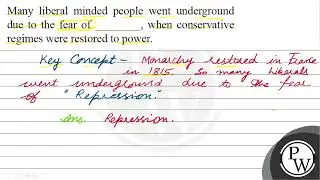 Many liberal minded people went underground
due to the fear of ________, when conservative
regimes were restored to power.
Key Concept - Monarchy restored in France
in 1815. So many liberals
went underground due to the fear
of "Repression."
Ans. Repression.
PW